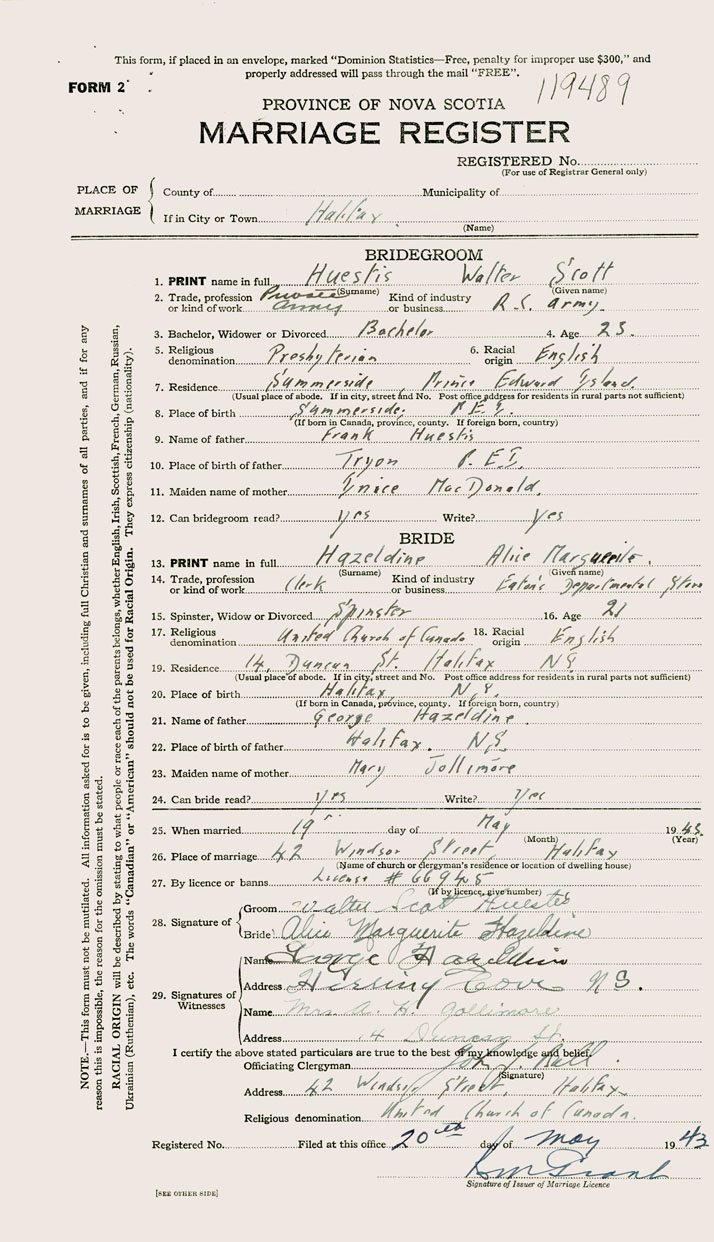 This form, if placed in an envelope, marked "Dominion Statistics—Free, penalty for improper use $300," and
properly addressed will pass through the mail "FREE".
FORM 2
119489
PROVINCE OF NOVA SCOTIA
MARRIAGE REGISTER
REGISTERED No.
(For use of Registrar General only)
PLACE OF MARRIAGE
County of Municipality of
If in City or Town Halifax
(Name)
BRIDEGROOM
1. PRINT name in full Huestis Walter Scott
(Surname) (Given name)
2. Trade, profession or kind of work Private Army Kind of industry or business R.C. Army.
3. Bachelor, Widower or Divorced Bachelor 4. Age 23.
5. Religious denomination Presbyterian 6. Racial origin English
7. Residence Summerside, Prince Edward Island.
(Usual place of abode. If in city, street and No. Post office address for residents in rural parts not sufficient)
8. Place of birth Summerside, P.E.I.
(If born in Canada, province, county. If foreign born, country)
9. Name of father Frank Huestis
10. Place of birth of father Tryon P.E.I.
11. Maiden name of mother MacDonald,
12. Can bridegroom read? yes Write? yes
BRIDE
13. PRINT name in full Hazeldine Alice Marguerite.
(Surname) (Given name)
14. Trade, profession or kind of work Clerk Kind of industry or business Eaton's Departmental Store
15. Spinster, Widow or Divorced Spinster 16. Age 21
17. Religious denomination United Church of Canada 18. Racial origin English
19. Residence 14, Duncan St. Halifax NS
(Usual place of abode. If in city, street and No. Post office address for residents in rural parts not sufficient)
20. Place of birth Halifax, N.S.
(If born in Canada, province, county. If foreign born, country)
21. Name of father George Hazeldine
22. Place of birth of father Halifax. N.S.
23. Maiden name of mother Mary Jollimore
24. Can bride read? yes Write? yes
25. When married 19 day of May 1943.
(Month) (Year)
26. Place of marriage 42 Windsor Street, Halifax
(Name of church or clergyman's residence or location of dwelling house)
27. By licence or banns License # 66945
(If by licence, give number)
28. Signature of
Groom Walter Scott Huestis
Bride Alice Marguerite Hazeldine
29. Signatures of Witnesses
Name George Hazeldine
Address Herring Cove N.S.
Name Mrs. A. H. Jollimore
Address 14 Duncan St.
I certify the above stated particulars are true to the best of my knowledge and belief.
Officiating Clergyman John J. Ball
(Signature)
Address 42 Windsor Street, Halifax
Religious denomination United Church of Canada.
Registered No. Filed at this office 20th day of May 1943
Grant
Signature of Issuer of Marriage Licence
[SEE OTHER SIDE]
NOTE.—This form must not be mutilated. All information asked for is to be given, including full Christian and surnames of all parties, and if for any
reason this is impossible, the reason for the omission must be stated.
RACIAL ORIGIN will be described by stating to what people or race each of the parents belongs, whether English, Irish, Scottish, French, German, Russian,
Ukrainian (Ruthenian), etc. The words "Canadian" or "American" should not be used for Racial Origin. They express citizenship (nationality).